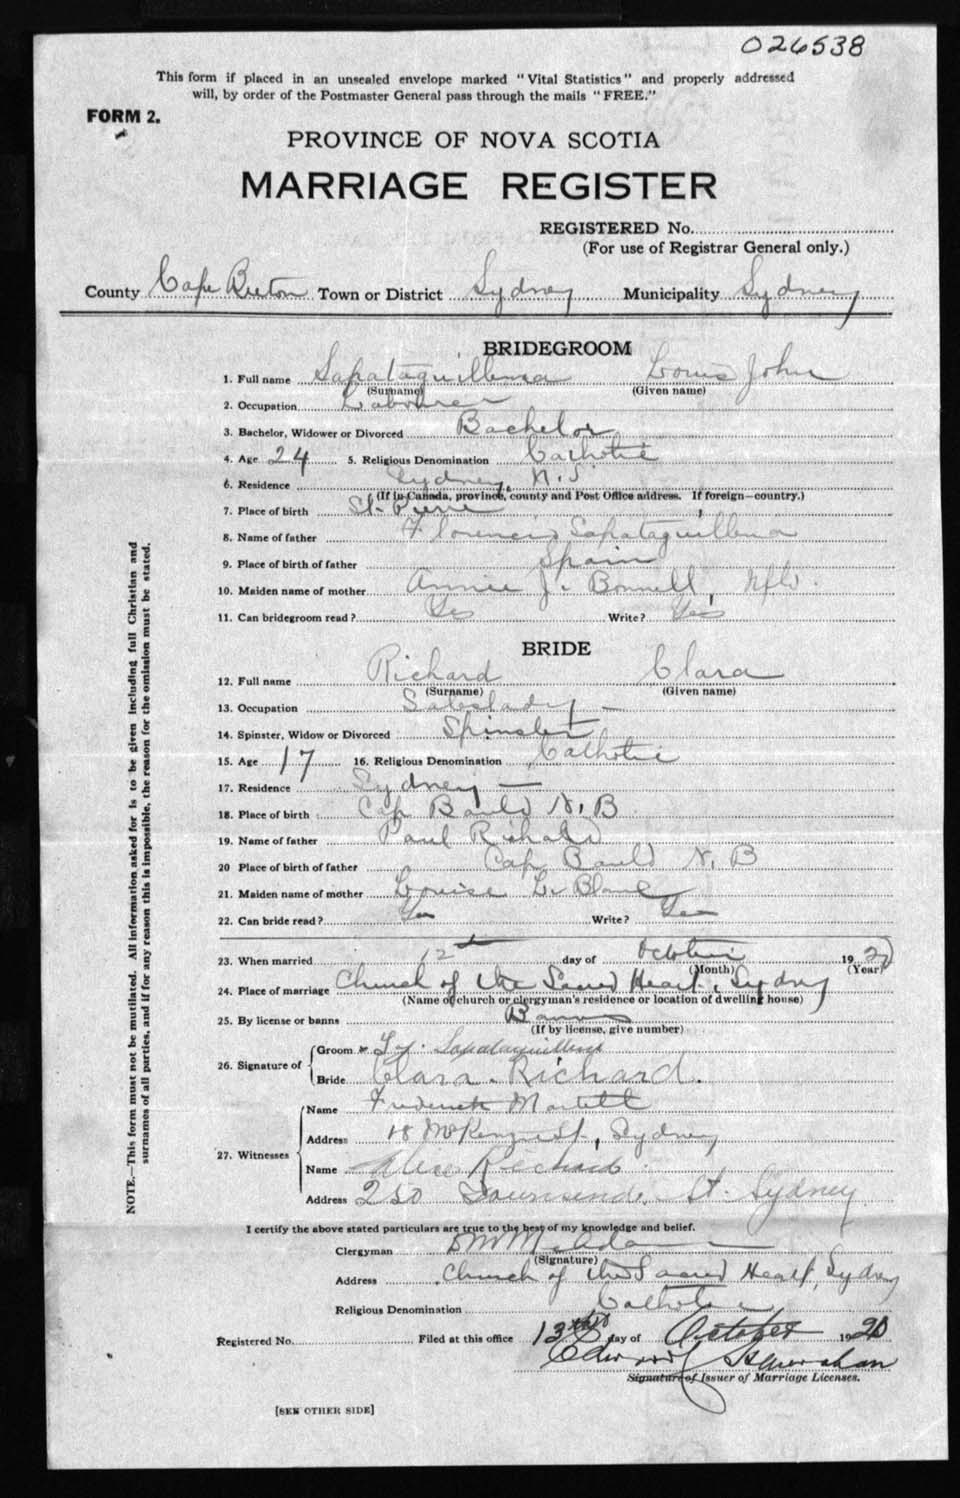 026538
This form if placed in an unsealed envelope marked "Vital Statistics" and properly addressed
will, by order of the Postmaster General pass through the mails "FREE."
FORM 2.
PROVINCE OF NOVA SCOTIA
MARRIAGE REGISTER
REGISTERED No.
(For use of Registrar General only.)
County Cape Breton Town or District Sydney Municipality Sydney
BRIDEGROOM
1. Full name Sapataquillena Louis John
(Surname) (Given name)
2. Occupation Labourer
3. Bachelor, Widower or Divorced Bachelor
4. Age 24 5. Religious Denomination Catholic
6. Residence Sydney, N.S.
(If in Canada, province, county and Post Office address. If foreign—country.)
7. Place of birth St. Pierre
8. Name of father Sapataquillena
9. Place of birth of father Spain
10. Maiden name of mother Annie J. Bonnell, Nfld.
11. Can bridegroom read? Yes Write? Yes
BRIDE
12. Full name Richard Clara
(Surname) (Given name)
13. Occupation Saleslady —
14. Spinster, Widow or Divorced Spinster
15. Age 17 16. Religious Denomination Catholic
17. Residence Sydney —
18. Place of birth Cap Bauld N.B
19. Name of father Paul Richard
20 Place of birth of father Cap Bauld N.B
21. Maiden name of mother Louise LeBlanc
22. Can bride read? Yes Write? Yes
23. When married 12th day of October 1920
(Month) (Year)
24. Place of marriage Church of the Sacred Heart, Sydney
(Name of church or clergyman's residence or location of dwelling house)
25. By license or banns Banns
(If by license, give number)
26. Signature of Groom Sapataquillena
Bride Clara. Richard.
27. Witnesses Name Frederick Martell
Address 18 McKenzie St., Sydney
Name Alice Richard
Address 250 Townsend. St. Sydney
I certify the above stated particulars are true to the best of my knowledge and belief.
Clergyman
(Signature)
Address Church of the Sacred Heart, Sydney
Religious Denomination Catholic
Registered No. Filed at this office 13th day of October 1920
Edward
Signature of Issuer of Marriage Licenses.
[SEE OTHER SIDE]
NOTE.—This form must not be mutilated. All information asked for is to be given including full Christian and
surnames of all parties, and if for any reason this is impossible, the reason for the omission must be stated.